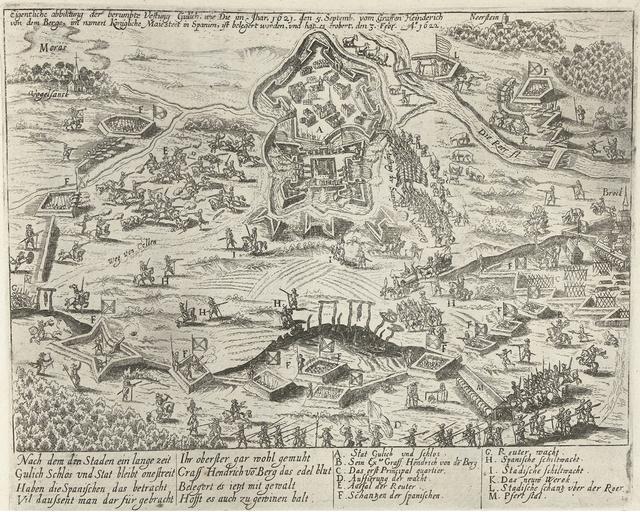 Eigentliche abbiltung der berumpte Vestung Gulich, wie Die im Jhar. 1621. den 5. Septemb. vom Graffen Heinderich
von dem Berge, im namen Konigliche Maiesteit in Spanien, ist belegert worden, und hat es erobert, den 3. Febr. Aº 1622.
Neerstein
Moras
Vogelsanck
Die Roer fl.
Broich
weg von Collen
Nach dem die Staden ein lange zeit
Gulich Schlos und Stat bleibt onestreit
Haben die Spanischen das betracht
Vil daussent man dar für gebracht
Ihr oberster gar wohl gemuht
Graff Hendrich vō Berg das edel blut
Belegert es ietzt mit gewalt
Hofft es auch zu gewinen balt.
A. Stat Gulich und schlos.
B. Sein Exᵃ Graff Hendrich von dē Berg
C. Das erst Principal quartier.
D. Auffürung der wacht.
E. Ausfal der Reuter.
F. Schantzen der Spanischen.
G. Reuter wacht
H. Spanische schiltwacht
I. Stadische schiltwacht
K. Das neuw Werck
L. Stadische schantz uber der Roer.
M. Pfert stal.